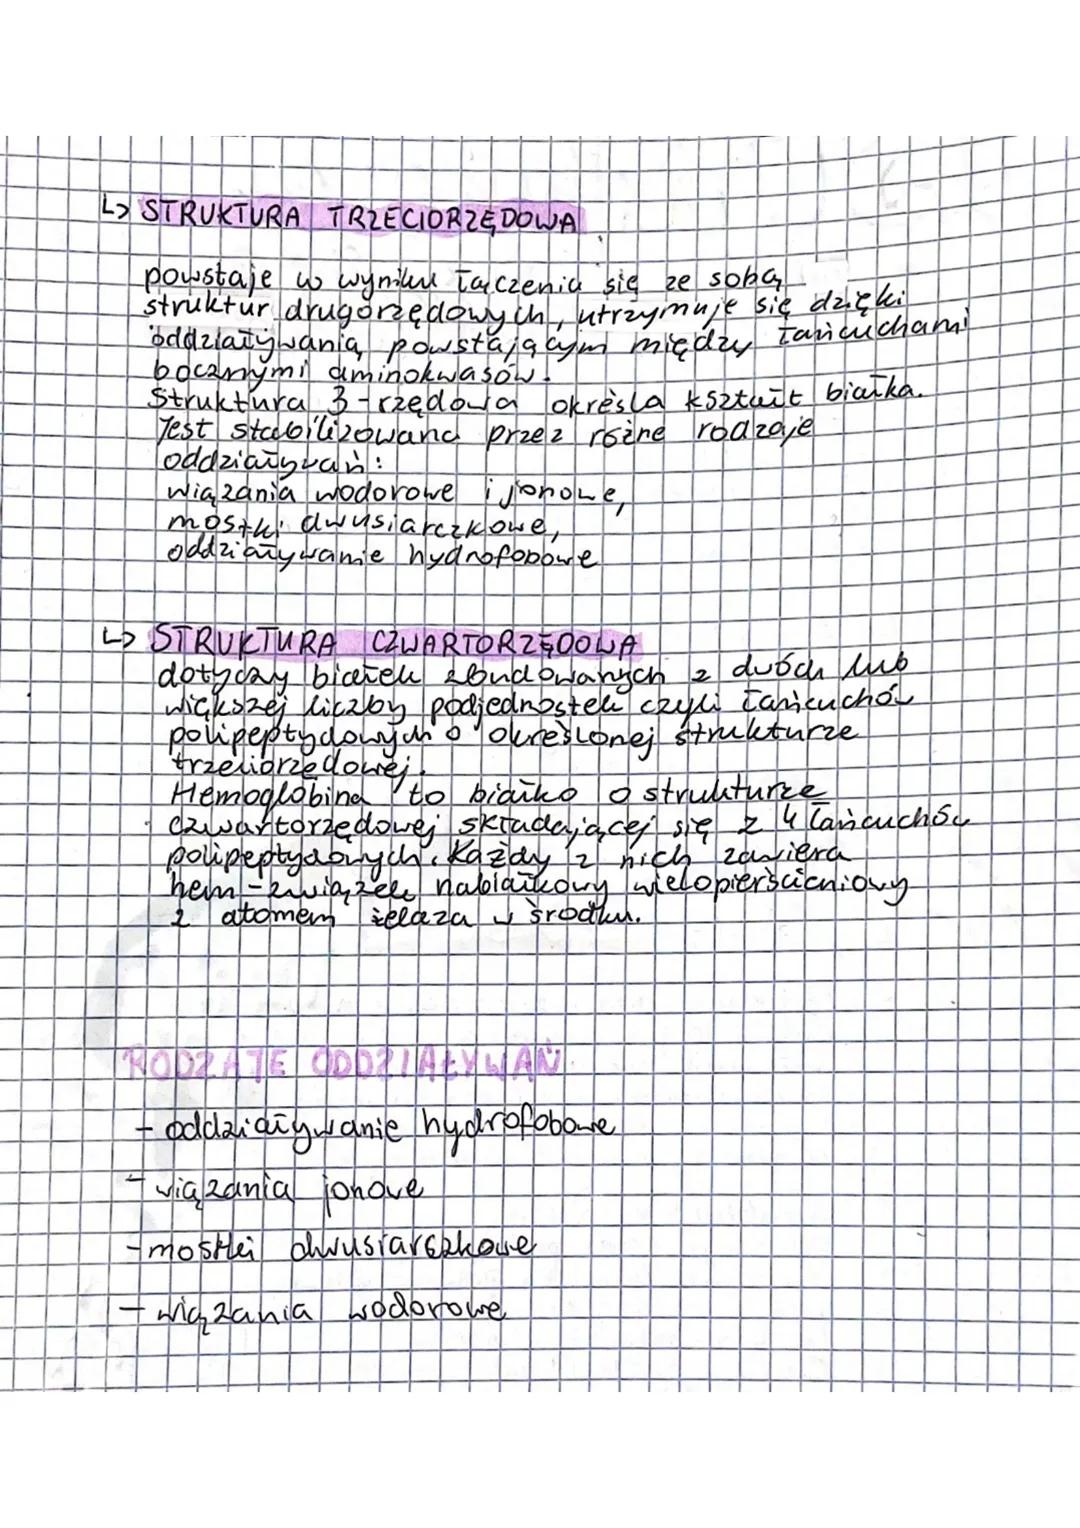 ↳ STRUKTURA TRZECIORZĘDOWA
powstaje w wyniku łączenia się ze sobą
struktur drugorzędowych, utrzymuje się dzięki
oddziaływanią powstającym między łańcuchami
bocznymi aminokwasów.
Struktura 3-rzędowa określa kształt białka.
Jest stabilizowana przez różne rodzaje
oddziaływań:
wiązania wodorowe i jonowe,
mostki dwusiarczkowe,
oddziaływanie hydrofobowe
↳ STRUKTURA CZWARTORZĘDOWA
dotyczy białek zbudowanych z dwóch lub
większej liczby podjednostek czyli łańcuchów
polipeptydowych o określonej strukturze
trzeciorzędowej.
Hemoglobina to białko o strukturze
czwartorzędowej składającej się z 4 łańcuchów
polipeptydowych. Każdy z nich zawiera
hem - związek nabiałkowy wielopierścieniowy
z atomem żelaza w środku.
RODZAJE ODDZIAŁYWAŃ
- oddziaływanie hydrofobowe
- wiązania jonowe
- mostki dwusiarczkowe
- wiązania wodorowe